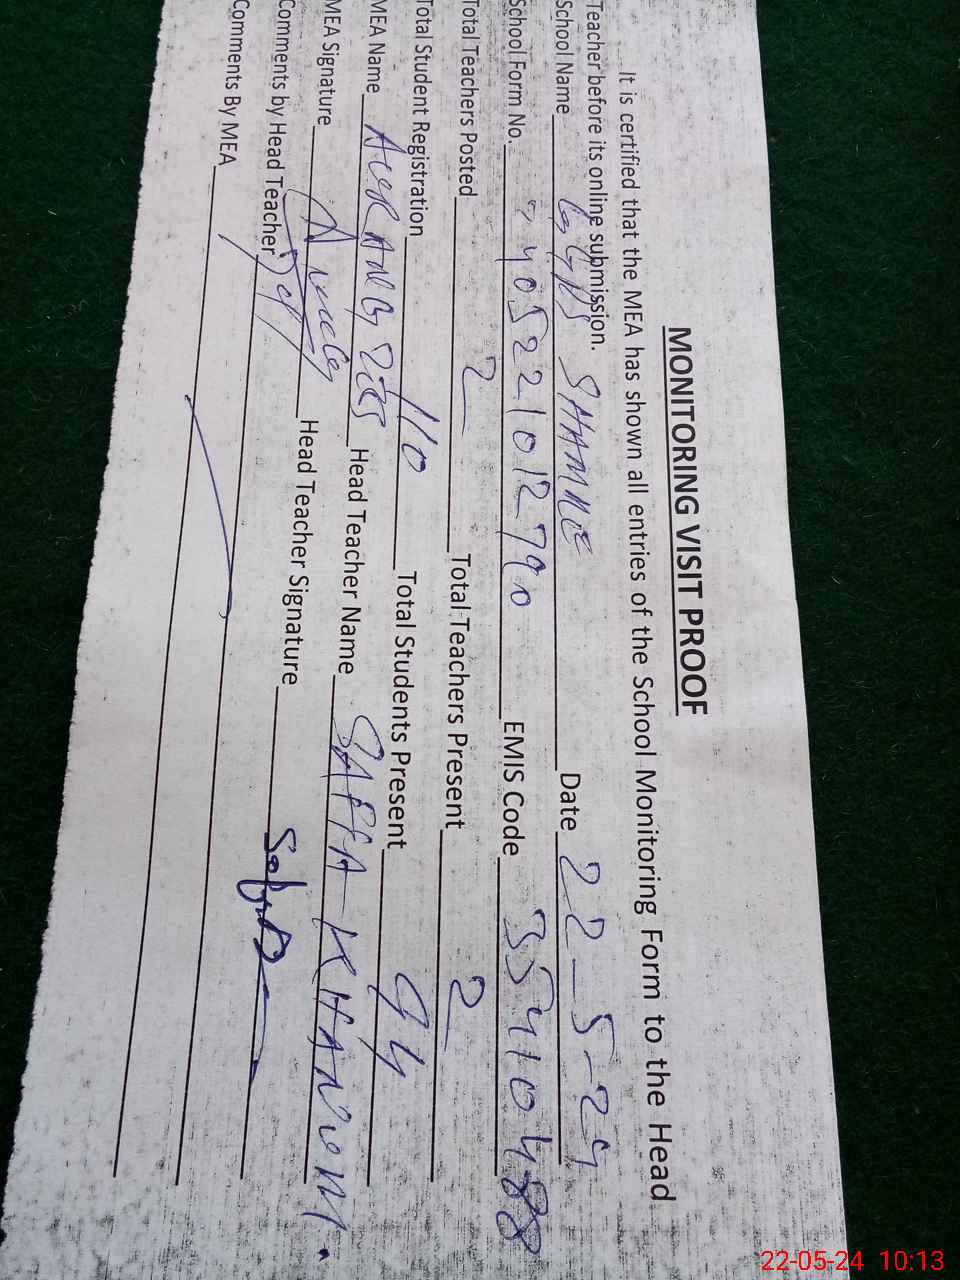 MONITORING VISIT PROOF
It is certified that the MEA has shown all entries of the School Monitoring Form to the Head
Teacher before its online submission.
School Name GGPS SHAMNE Date 22-5-24
School Form No. 7405221012790 EMIS Code 35410488
Total Teachers Posted 2 Total Teachers Present 2
Total Student Registration 110 Total Students Present 94
MEA Name Head Teacher Name SAFIA KHANUM.
MEA Signature Head Teacher Signature
Comments by Head Teacher
Comments By MEA
22-05-24 10:13